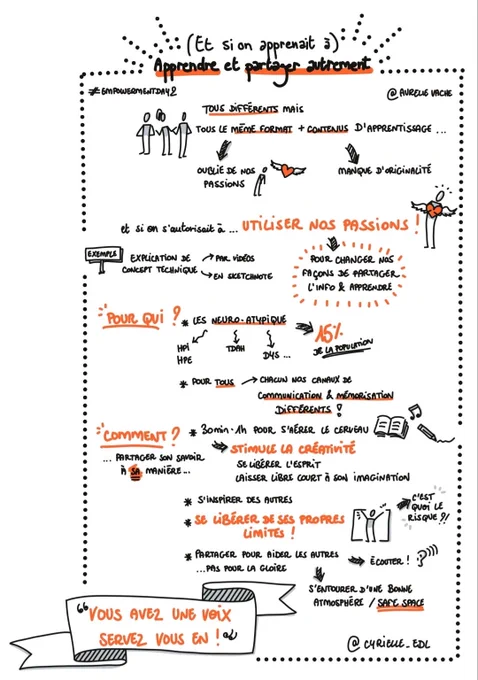 (Et si on apprenait à)
Apprendre et partager autrement
#EMPOWERMENTDAY2
@AURELIE VACHE
TOUS DIFFÉRENTS MAIS
TOUS LE MÊME FORMAT + CONTENUS D'APPRENTISSAGE ...
OUBLIE DE NOS
PASSIONS
MANQUE D'ORIGINALITÉ
et si on s'autorisait à ... UTILISER NOS PASSIONS !
EXEMPLE
EXPLICATION DE
CONCEPT TECHNIQUE
PAR VIDÉOS
EN SKETCHNOTE
POUR CHANGER NOS
FAÇONS DE PARTAGER
L'INFO & APPRENDRE
POUR QUI ?
* LES NEURO-ATYPIQUE
15%
DE LA POPULATION
HPI
HPE
TDAH
DYS ...
* POUR TOUS
CHACUN NOS CANAUX DE
COMMUNICATION & MÉMORISATION
DIFFÉRENTS !
COMMENT ?
... PARTAGER SON SAVOIR
À SA MANIÈRE ...
* 30min-1h POUR S'AÉRER LE CERVEAU
STIMULE LA CRÉATIVITÉ
SE LIBÉRER L'ESPRIT
LAISSER LIBRE COURT À SON IMAGINATION
* S'INSPIRER DES AUTRES
* SE LIBÉRER DE SES PROPRES
LIMITES !
C'EST
QUOI LE
RISQUE ?!
* PARTAGER POUR AIDER LES AUTRES
... PAS POUR LA GLOIRE
ÉCOUTER !
S'ENTOURER D'UNE BONNE
ATMOSPHÈRE / SAFE SPACE
“VOUS AVEZ UNE VOIX
SERVEZ VOUS EN !”
@CYRIELLE_EDL